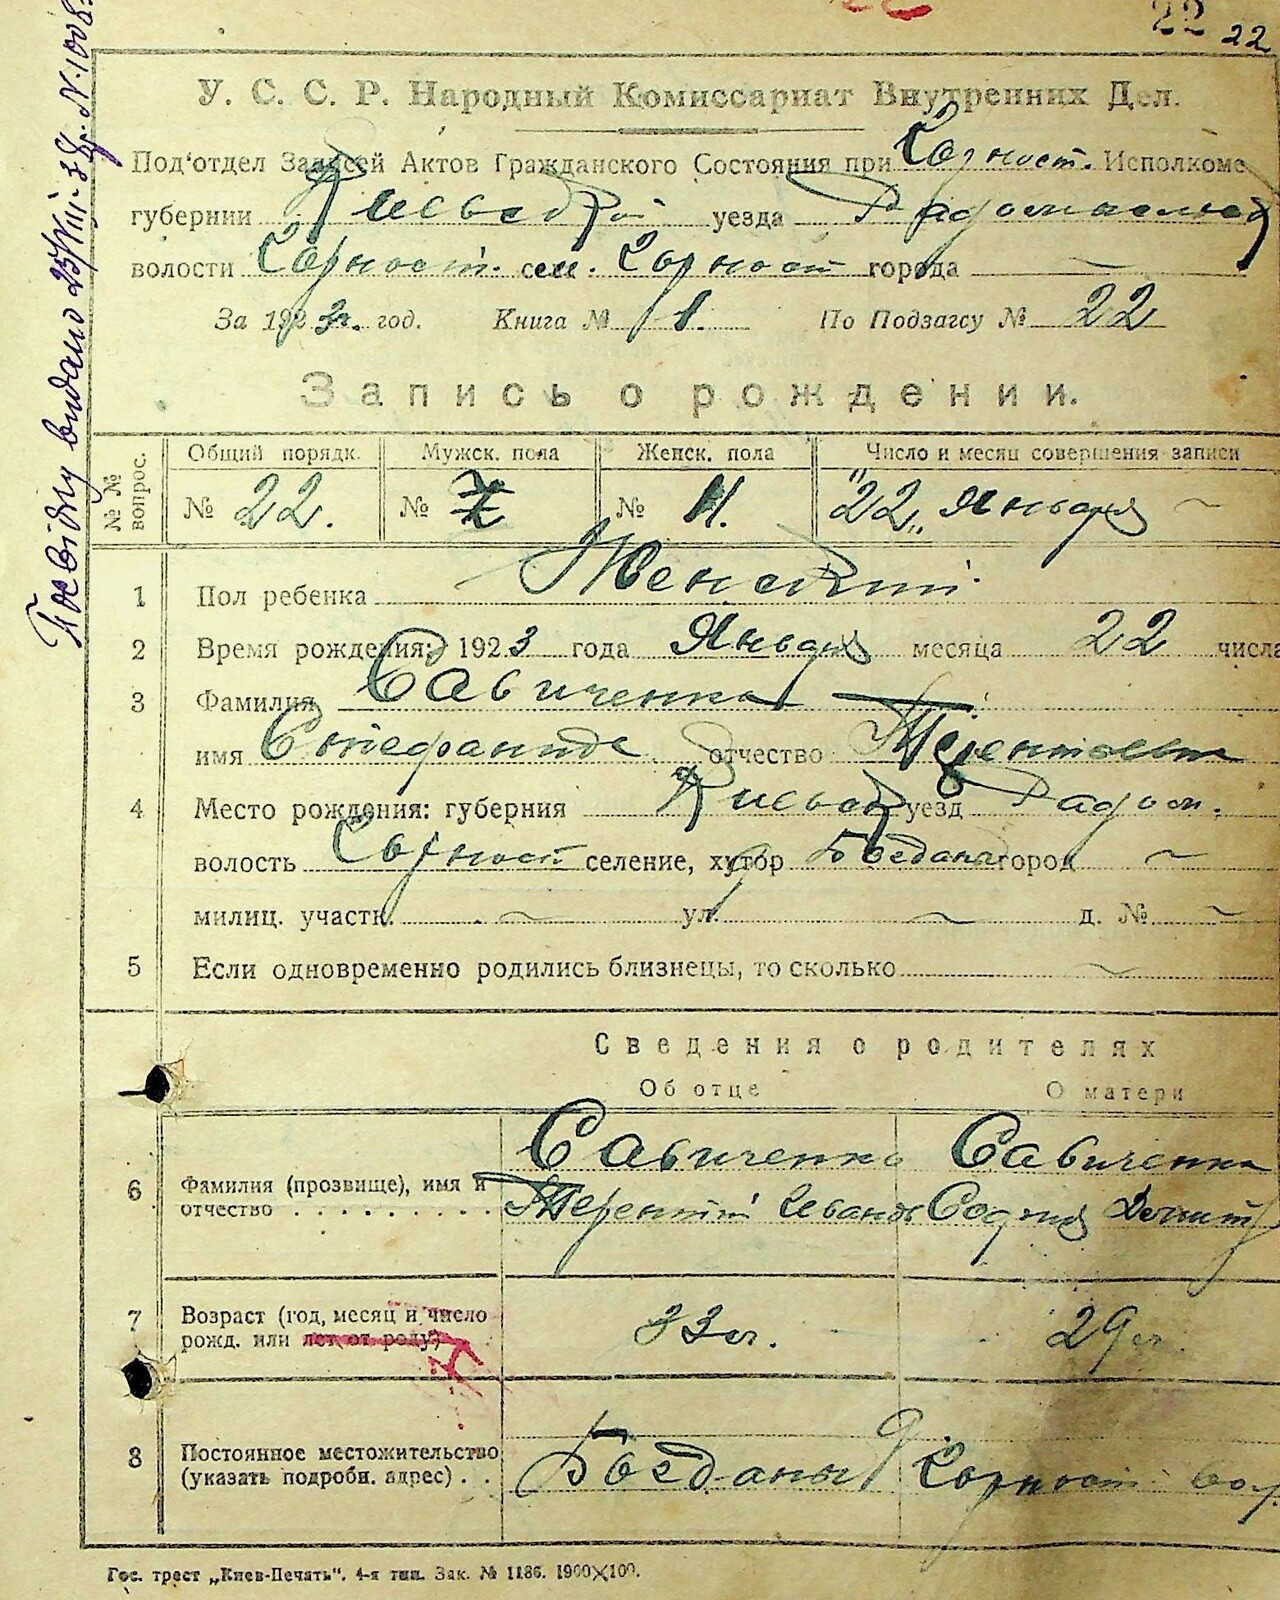 22 22
У. С. С. Р. Народный Комиссариат Внутренних Дел.
Под'отдел Записей Актов Гражданского Состояния при Горност. Исполкоме
губернии Киевской уезда Радомысльск
волости Горност. сел. Горност города ~
За 1923 г. год. Книга № 1. По Подзагсу № 22
Запись о рождении.
№ № вопрос. Общий порядк. Мужск. пола Женск. пола Число и месяц совершения записи
№ 22. № № 11. "22" Января ~
1 Пол ребенка Женский
2 Время рождения: 1923 года Января месяца 22 числа
3 Фамилия Савиченко
имя отчество Терентьевн
4 Место рождения: губерния Киевск уезд Радом.
волость Горност селение, хутор Богданы город ~
милиц. участк. ~ ул. ~ д. № ~
5 Если одновременно родились близнецы, то сколько ~
Сведения о родителях
Об отце О матери
Савиченко Савиченко
6 Фамилия (прозвище), имя и
отчество . . . . . . . . . Терентий София
7 Возраст (год, месяц и число
рожд. или лет от роду) 33 л. 29 л.
8 Постоянное местожительство
(указать подробн. адрес) . . Богданы Горност. вол.
Гос. трест „Киев-Печать". 4-я тип. Зак. № 1186. 1900×100.
Посвідку видано 25/VIII-38 р. N. 1008